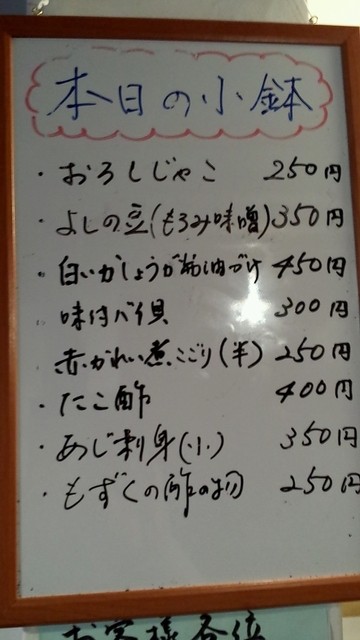 本日の小鉢
・おろしじゃこ 250円
・よしの豆(もろみ味噌) 350円
・白いかしょうが醤油づけ 450円
・味付バイ貝 300円
・赤がれい煮こごり(半) 250円
・たこ酢 400円
・あじ刺身(小) 350円
・もずくの酢の物 250円
お客様各位